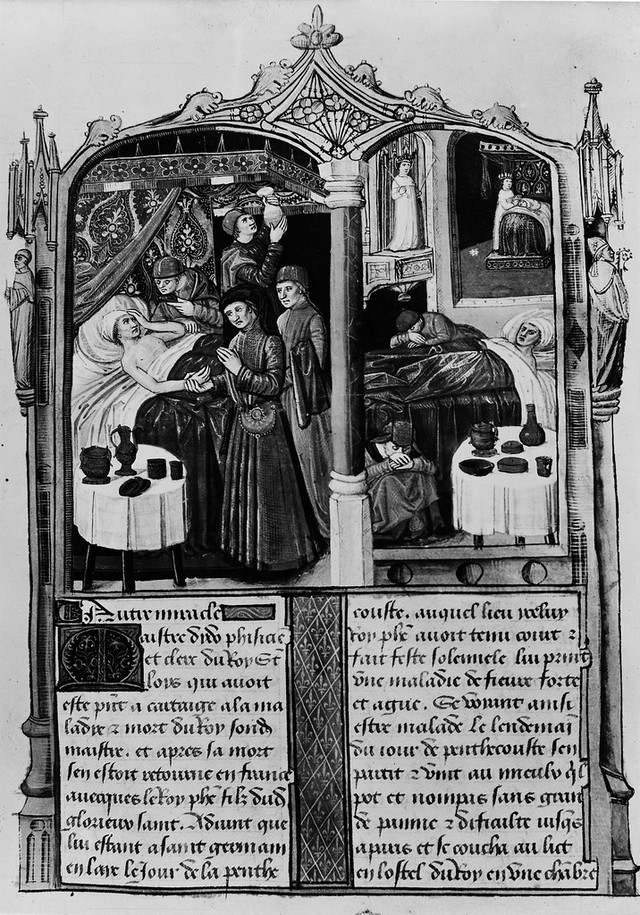 Autre miracle
Maistre dudo phisicie
et clerc du Roy St
loys qui avoit
este pñt a cartaige a la ma
ladie ⁊ mort du Roy son d
maistre. et apres sa mort
sen estoit retourne en france
avecques le Roy phe filz dud
glorieux saint. Advint que
lui estant a saint germain
en laye le jour de la penthe
couste. auquel lieu
Roy phe avoit tenu court ⁊
fait feste solennele lui print
vne maladie de fievre forte
et ague. Se voyant ainsi
estre malade le lendemai
du iour de penthecouste sen
partit ⁊ vint au mieulx ql
pot et nompas sans gran
de paine ⁊ dificulte iusqs
a paris et se coucha au lict
en lostel du Roy en vne chābre